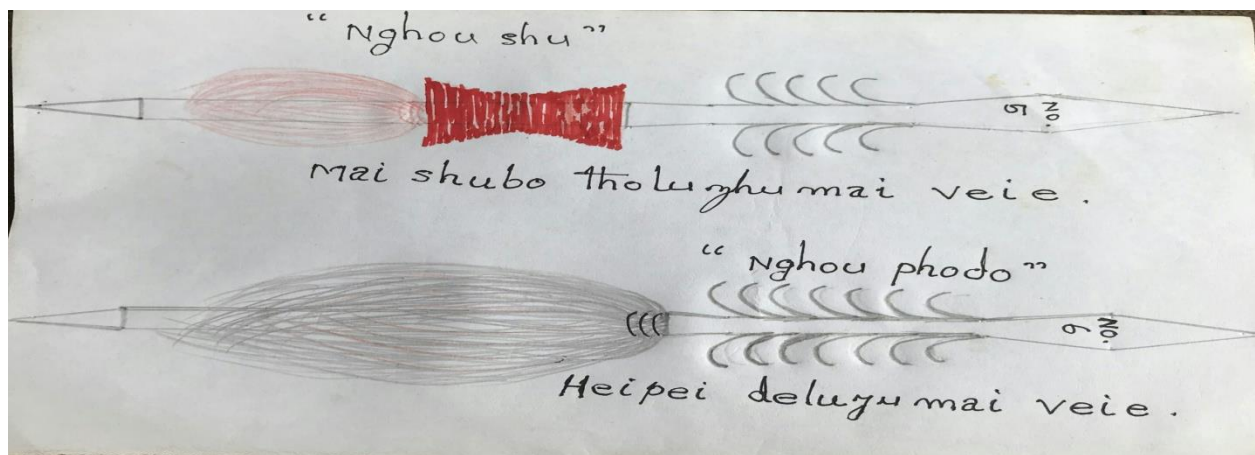 “Nghou shu”
No. 5
Mai shubo tholuzhumai veie.
“Nghou phodo”
No. 6
Heipei deluzumai veie.